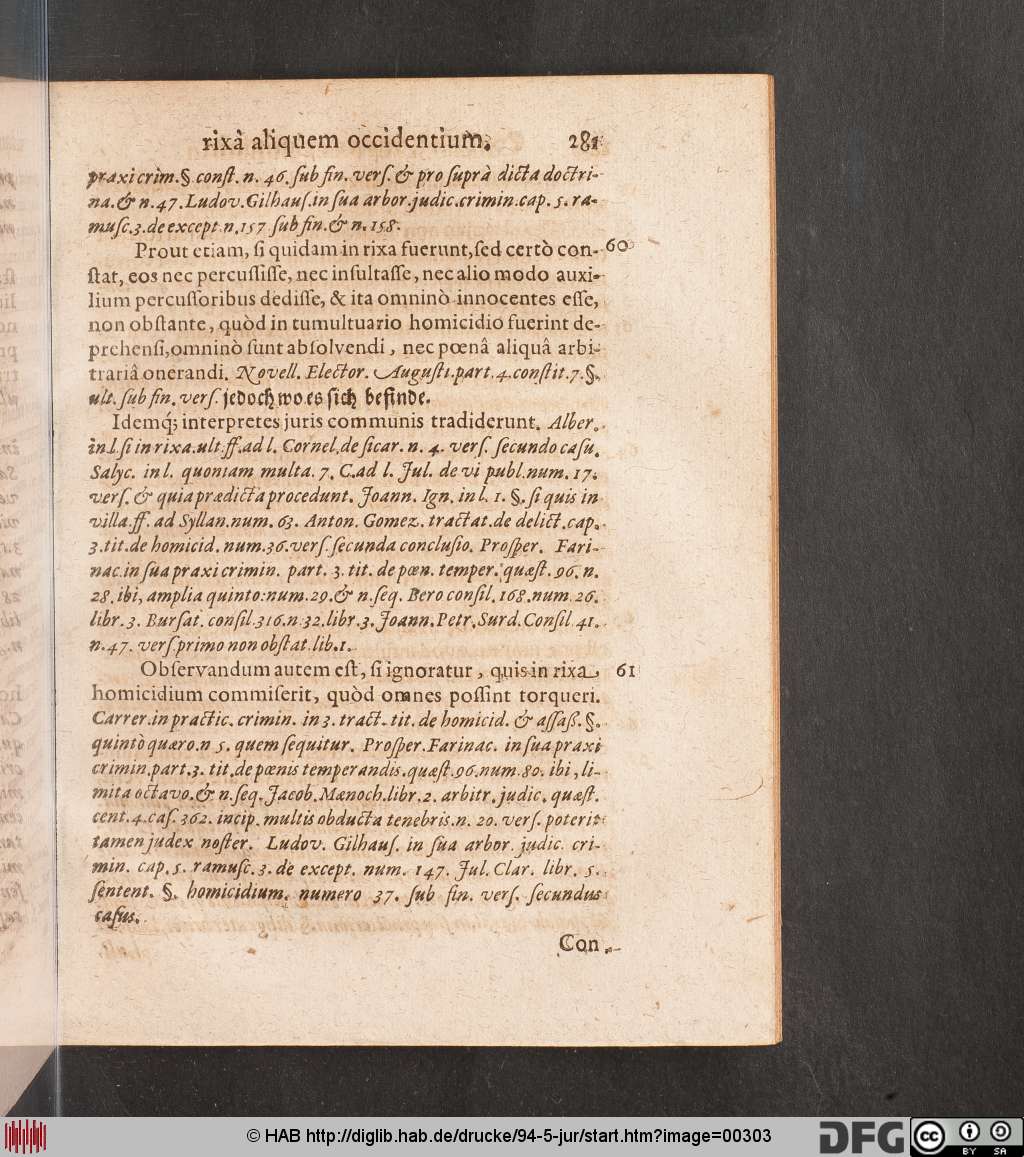 rixâ aliquem occidentium. 281
praxi crim. § const. n. 46. sub fin. vers. & pro suprà dicta doctri-
na. & n. 47. Ludov. Gilhaus. in sua arbor. judic. crimin. cap. 5. ra-
musc. 3. de except. n. 157 sub fin. & n. 158.
Prout etiam, si quidam in rixa fuerunt, sed certò con- 60
stat, eos nec percussisse, nec insultasse, nec alio modo auxi-
lium percussoribus dedisse, & ita omninò innocentes esse,
non obstante, quòd in tumultuario homicidio fuerint de-
prehensi, omninò sunt absolvendi, nec pœnâ aliquâ arbi-
trariâ onerandi. Novell. Elector. Augusti. part. 4. constit. 7. §.
ult. sub fin. vers. jedoch wo es sich befinde.
Idemq́; interpretes juris communis tradiderunt. Alber.
in l. si in rixa. ult. ff. ad l. Cornel. de sicar. n. 4. vers. secundo casu.
Salyc. in l. quoniam multa. 7. C. ad l. Jul. de vi publ. num. 17.
vers. & quia prædicta procedunt. Joann. Ign. in l. 1. §. si quis in
villa. ff. ad Syllan. num. 63. Anton. Gomez. tractat. de delict. cap.
3. tit. de homicid. num. 36. vers. secunda conclusio. Prosper. Fari-
nac. in sua praxi crimin. part. 3. tit. de pœn. temper. quæst. 96. n.
28. ibi, amplia quinto: num. 29. & n. seq. Bero consil. 168. num. 26.
libr. 3. Bursat. consil. 316. n. 32. libr. 3. Joann. Petr. Surd. Consil. 41.
n. 47. vers. primo non obstat. lib. 1.
Observandum autem est, si ignoratur, quis in rixa 61
homicidium commiserit, quòd omnes possint torqueri.
Carrer. in practic. crimin. in 3. tract. tit. de homicid. & assaß. §.
quintò quæro. n 5. quem sequitur. Prosper. Farinac. in sua praxi
crimin. part. 3. tit. de pœnis temperandis. quæst. 96. num. 80. ibi, li-
mita octavo. & n. seq. Jacob. Mænoch. libr. 2. arbitr. judic. quæst.
cent. 4. cas. 362. incip. multis obducta tenebris. n. 20. vers. poterit
tamen judex noster. Ludov. Gilhaus. in sua arbor. judic. cri-
min. cap. 5. ramusc. 3. de except. num. 147. Jul. Clar. libr. 5.
sentent. §. homicidium. numero 37. sub fin. vers. secundus
casus.
Con
© HAB http://diglib.hab.de/drucke/94-5-jur/start.htm?image=00303
DFG cc BY SA